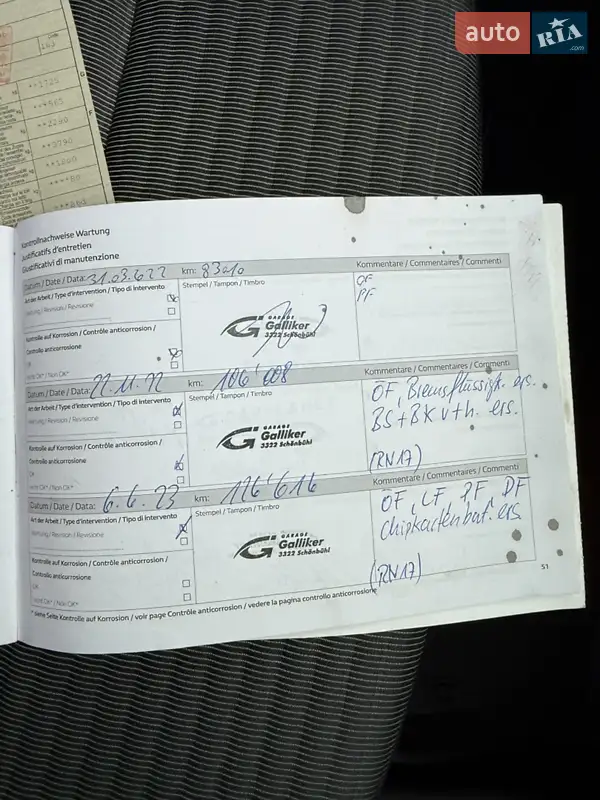 auto RIA.com
163
**1720
***565
**2290
**3790
**1860
****80
Kontrollnachweise Wartung
Justificatifs d'entretien
Giustificativi di manutenzione
Datum / Date / Data: 31.03.22 km: 83210 Kommentare / Commentaires / Commenti
Art der Arbeit / Type d'intervention / Tipo di intervento Stempel / Tampon / Timbro ÖF
Wartung / Révision / Revisione PF
GARAGE
Kontrolle auf Korrosion / Contrôle anticorrosion / Galliker
Controllo anticorrosione 3322 Schönbühl
Datum / Date / Data: 22.11.22 km: 106'008 Kommentare / Commentaires / Commenti
Art der Arbeit / Type d'intervention / Tipo di intervento Stempel / Tampon / Timbro ÖF, Bremsflüssigk. ers.
Wartung / Révision / Revisione BS+BK v+h. ers.
GARAGE
Kontrolle auf Korrosion / Contrôle anticorrosion / Galliker
Controllo anticorrosione 3322 Schönbühl
OK
nicht OK* / Non OK* (RN17)
Datum / Date / Data: 6.6.23 km: 126'616 Kommentare / Commentaires / Commenti
Art der Arbeit / Type d'intervention / Tipo di intervento Stempel / Tampon / Timbro ÖF, LF, PF, DF
Wartung / Révision / Revisione Chipkartenbat. ers.
GARAGE
Kontrolle auf Korrosion / Contrôle anticorrosion / Galliker
Controllo anticorrosione 3322 Schönbühl
OK
nicht OK* / Non OK* (RN17)
* siehe Seite Kontrolle auf Korrosion / voir page Contrôle anticorrosion / vedere la pagina controllo anticorrosione
51